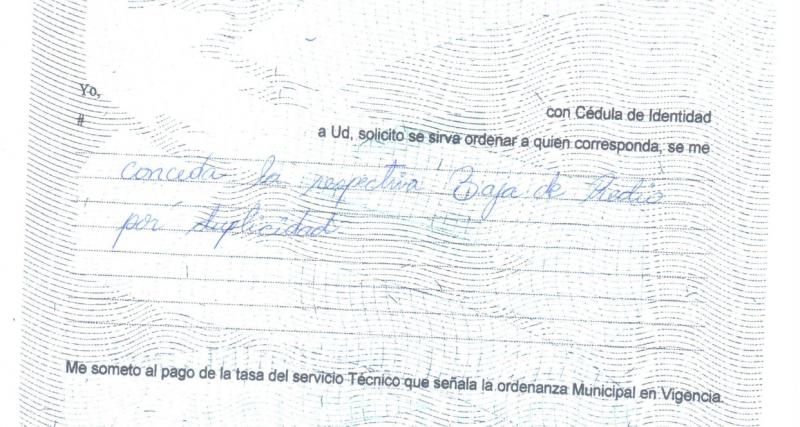 Yo,
con Cédula de Identidad
#
a Ud, solicito se sirva ordenar a quien corresponda, se me
conceda la respectiva Baja de Predio
por duplicidad
Me someto al pago de la tasa del servicio Técnico que señala la ordenanza Municipal en Vigencia.